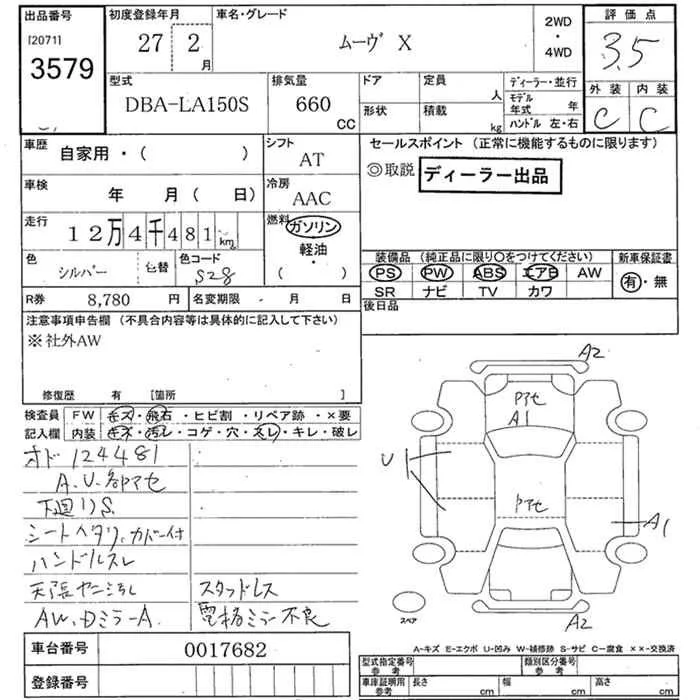 出品番号 初度登録年月 車名・グレード 2WD・4WD 評価点
[2071] 27 2月 ムーヴ X 3.5
3579
型式 排気量 ドア 定員 人 ディーラー・並行 外装 内装
DBA-LA150S 660 CC 形状 積載 kg モデル年式 年 ハンドル 左・右 C C
車歴 自家用・( ) シフト AT セールスポイント (正常に機能するものに限ります)
◎取説 ディーラー出品
車検 年 月( 日) 冷房 AAC
走行 12万4千481km 燃料 ガソリン
軽油・
( )
色 シルバー 色替 色コード S28
装備品 (純正品に限り〇をつけてください) 新車保証書
PS PW ABS エアB AW 有・無
SR ナビ TV カワ
R券 8,780 円 名変期限 ・ 月 日 後日品
注意事項申告欄 (不具合内容等は具体的に記入して下さい)
※社外AW
修復歴 有 [箇所 ]
検査員 FW キズ・飛石・ヒビ割・リペア跡・×要
記入欄 内装 キズ・汚レ・コゲ・穴・スレ・キレ・破レ
オド 124481
A.U.部アセ
下廻りS
シートヘタリ、カバー付
ハンドルスレ
天張ヤニ汚レ スタッドレス
AW.DミラーA 電格ミラー不良
A2
Pアセ
A1
U
Pアセ
A1
スペア
A2
A-キズ E-エクボ U-凹み W-補修跡 S-サビ C-腐食 ××-交換済
車台番号 0017682
登録番号
型式指定番号 参考 類別区分番号 参考
車庫証明用 参考 長さ cm 幅 cm 高さ cm